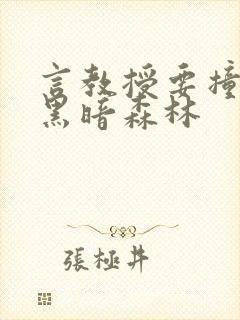 言教授要撞
黑暗森林
張極井